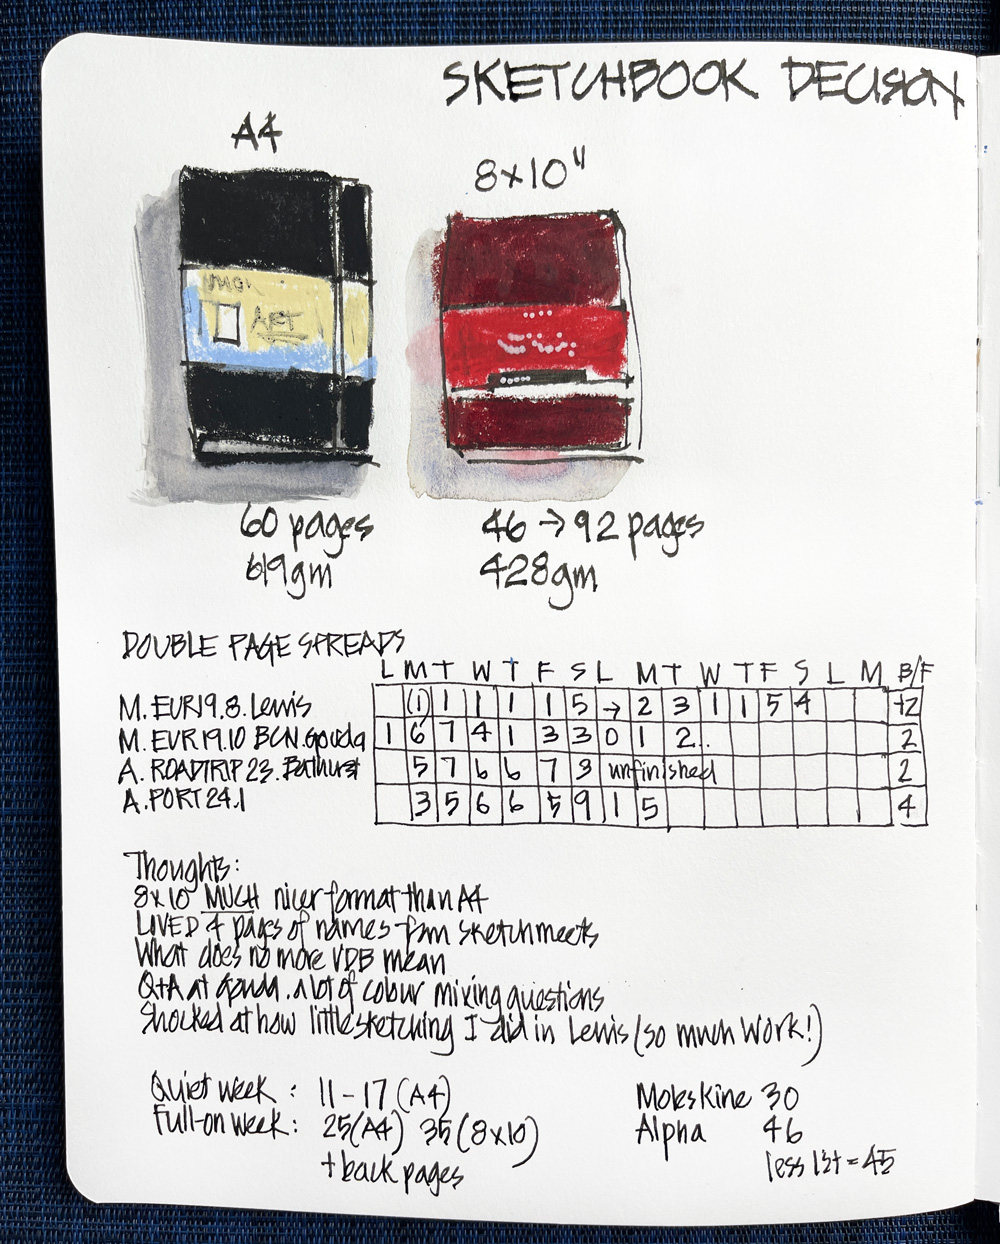 SKETCHBOOK DECISION
A4
8x10"
ART
60 pages
619gm
46 → 92 pages
428gm
DOUBLE PAGE SPREADS
L M T W T F S L M T W T F S L M B/F
M. EUR19.8. Lewis (1) 1 1 1 1 5 → 2 3 1 1 5 4 +2
M. EUR19.10 BCN. Gouda 1 6 7 4 1 3 3 0 1 2.. 2
A. ROADTRIP 23. Bathurst 5 7 6 6 7 3 unfinished 2
A. PORT 24.1 3 5 6 6 5 9 1 5 4
Thoughts:
8x10 MUCH nicer format than A4
LOVED 4 pages of names from sketchmeets
What does no more VDB mean
Q+A at Gouda. a lot of colour mixing questions
Shocked at how little sketching I did in Lewis (so much work!)
Quiet week : 11 - 17 (A4)
Full-on week: 25(A4) 35(8x10)
+ back pages
Moleskine 30
Alpha 46
less 1st = 45